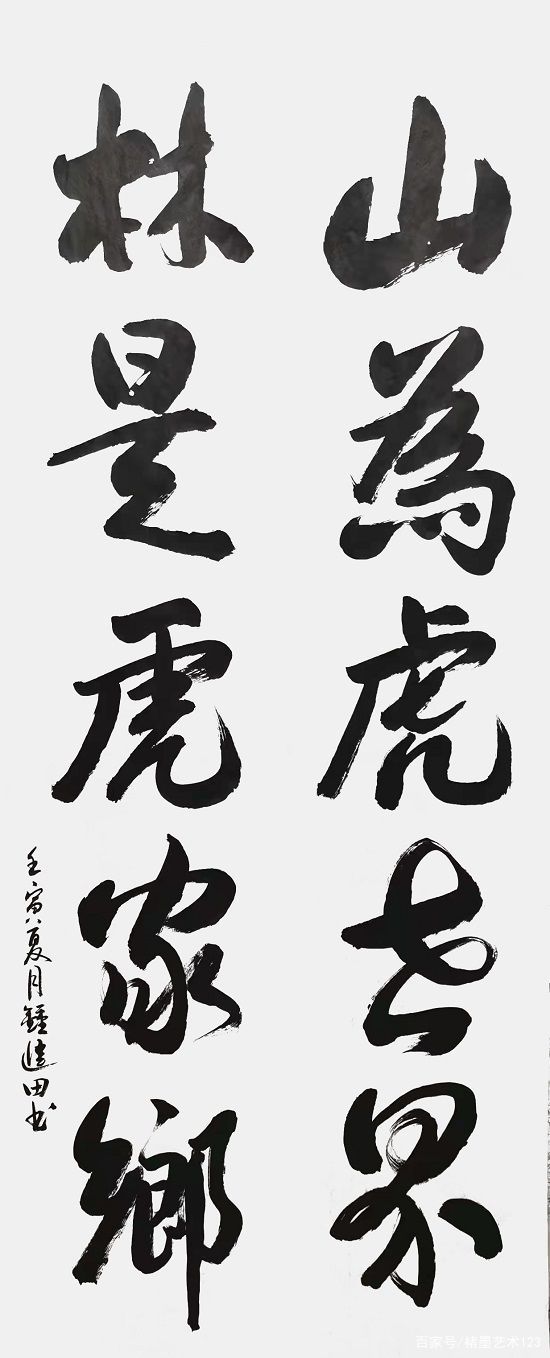 山為虎世界
林是虎家鄉
壬寅夏月鍾建田书
百家号/楮墨艺术123